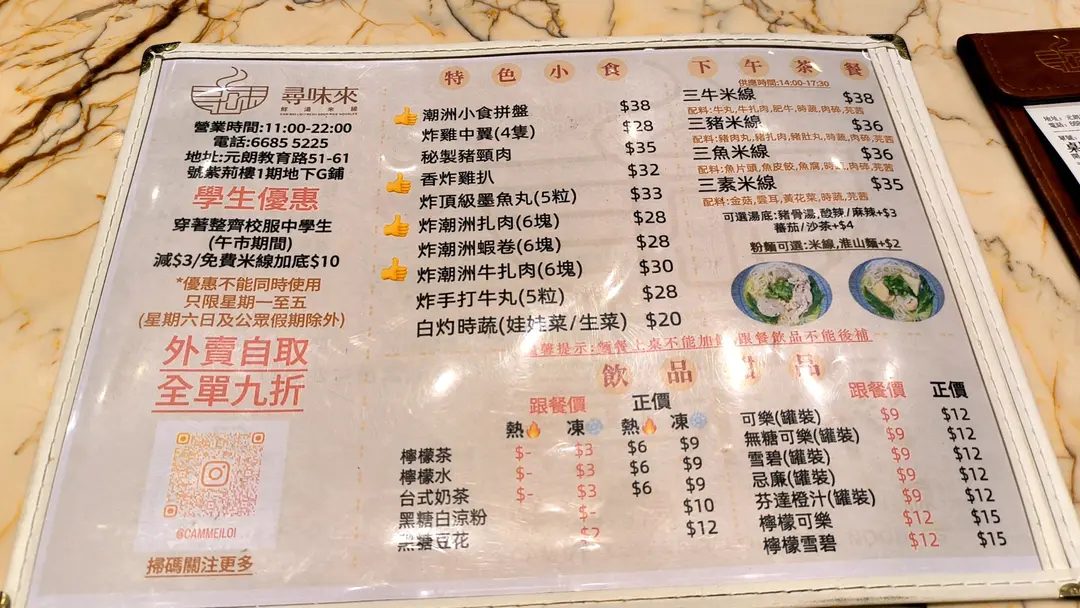 尋味來
鮮湯米線
營業時間:11:00-22:00
電話:6685 5225
地址:元朗教育路51-61
號紫荊樓1期地下G鋪
學生優惠
穿著整齊校服中學生
(午市期間)
減$3/免費米線加底$10
*優惠不能同時使用
只限星期一至五
(星期六日及公眾假期除外)
外賣自取
全單九折
@CAMMEILOI
掃碼關注更多
特色小食
潮洲小食拼盤 $38
炸雞中翼(4隻) $28
秘製豬頸肉 $35
香炸雞扒 $32
炸頂級墨魚丸(5粒) $33
炸潮洲扎肉(6塊) $28
炸潮洲蝦卷(6塊) $28
炸潮洲牛扎肉(6塊) $30
炸手打牛丸(5粒) $28
白灼時蔬(娃娃菜/生菜) $20
下午茶餐
供應時間:14:00-17:30
三牛米線 $38
配料:牛丸,牛扎肉,肥牛,時蔬,肉碎,芫茜
三豬米線 $36
配料:豬肉丸,豬扎肉,豬肚丸,時蔬,肉碎,芫茜
三魚米線 $36
配料:魚片頭,魚皮餃,魚腐,時蔬,肉碎,芫茜
三素米線 $35
配料:金菇,雲耳,黃花菜,時蔬,芫茜
可選湯底:豬骨湯,酸辣/麻辣+$3
蕃茄/沙茶+$4
粉麵可選:米線,淮山麵+$2
提示:麵餐上桌不能加 跟餐飲品不能後補
飲品 品
跟餐價 正價
熱 凍 熱 凍
檸檬茶 $- $3 $6 $9
檸檬水 $- $3 $6 $9
台式奶茶 $- $3 $6 $9
黑糖白涼粉 $- $10
黑糖豆花 $2 $12
跟餐價 正價
可樂(罐裝) $9 $12
無糖可樂(罐裝) $9 $12
雪碧(罐裝) $9 $12
忌廉(罐裝) $9 $12
芬達橙汁(罐裝) $9 $12
檸檬可樂 $12 $15
檸檬雪碧 $12 $15